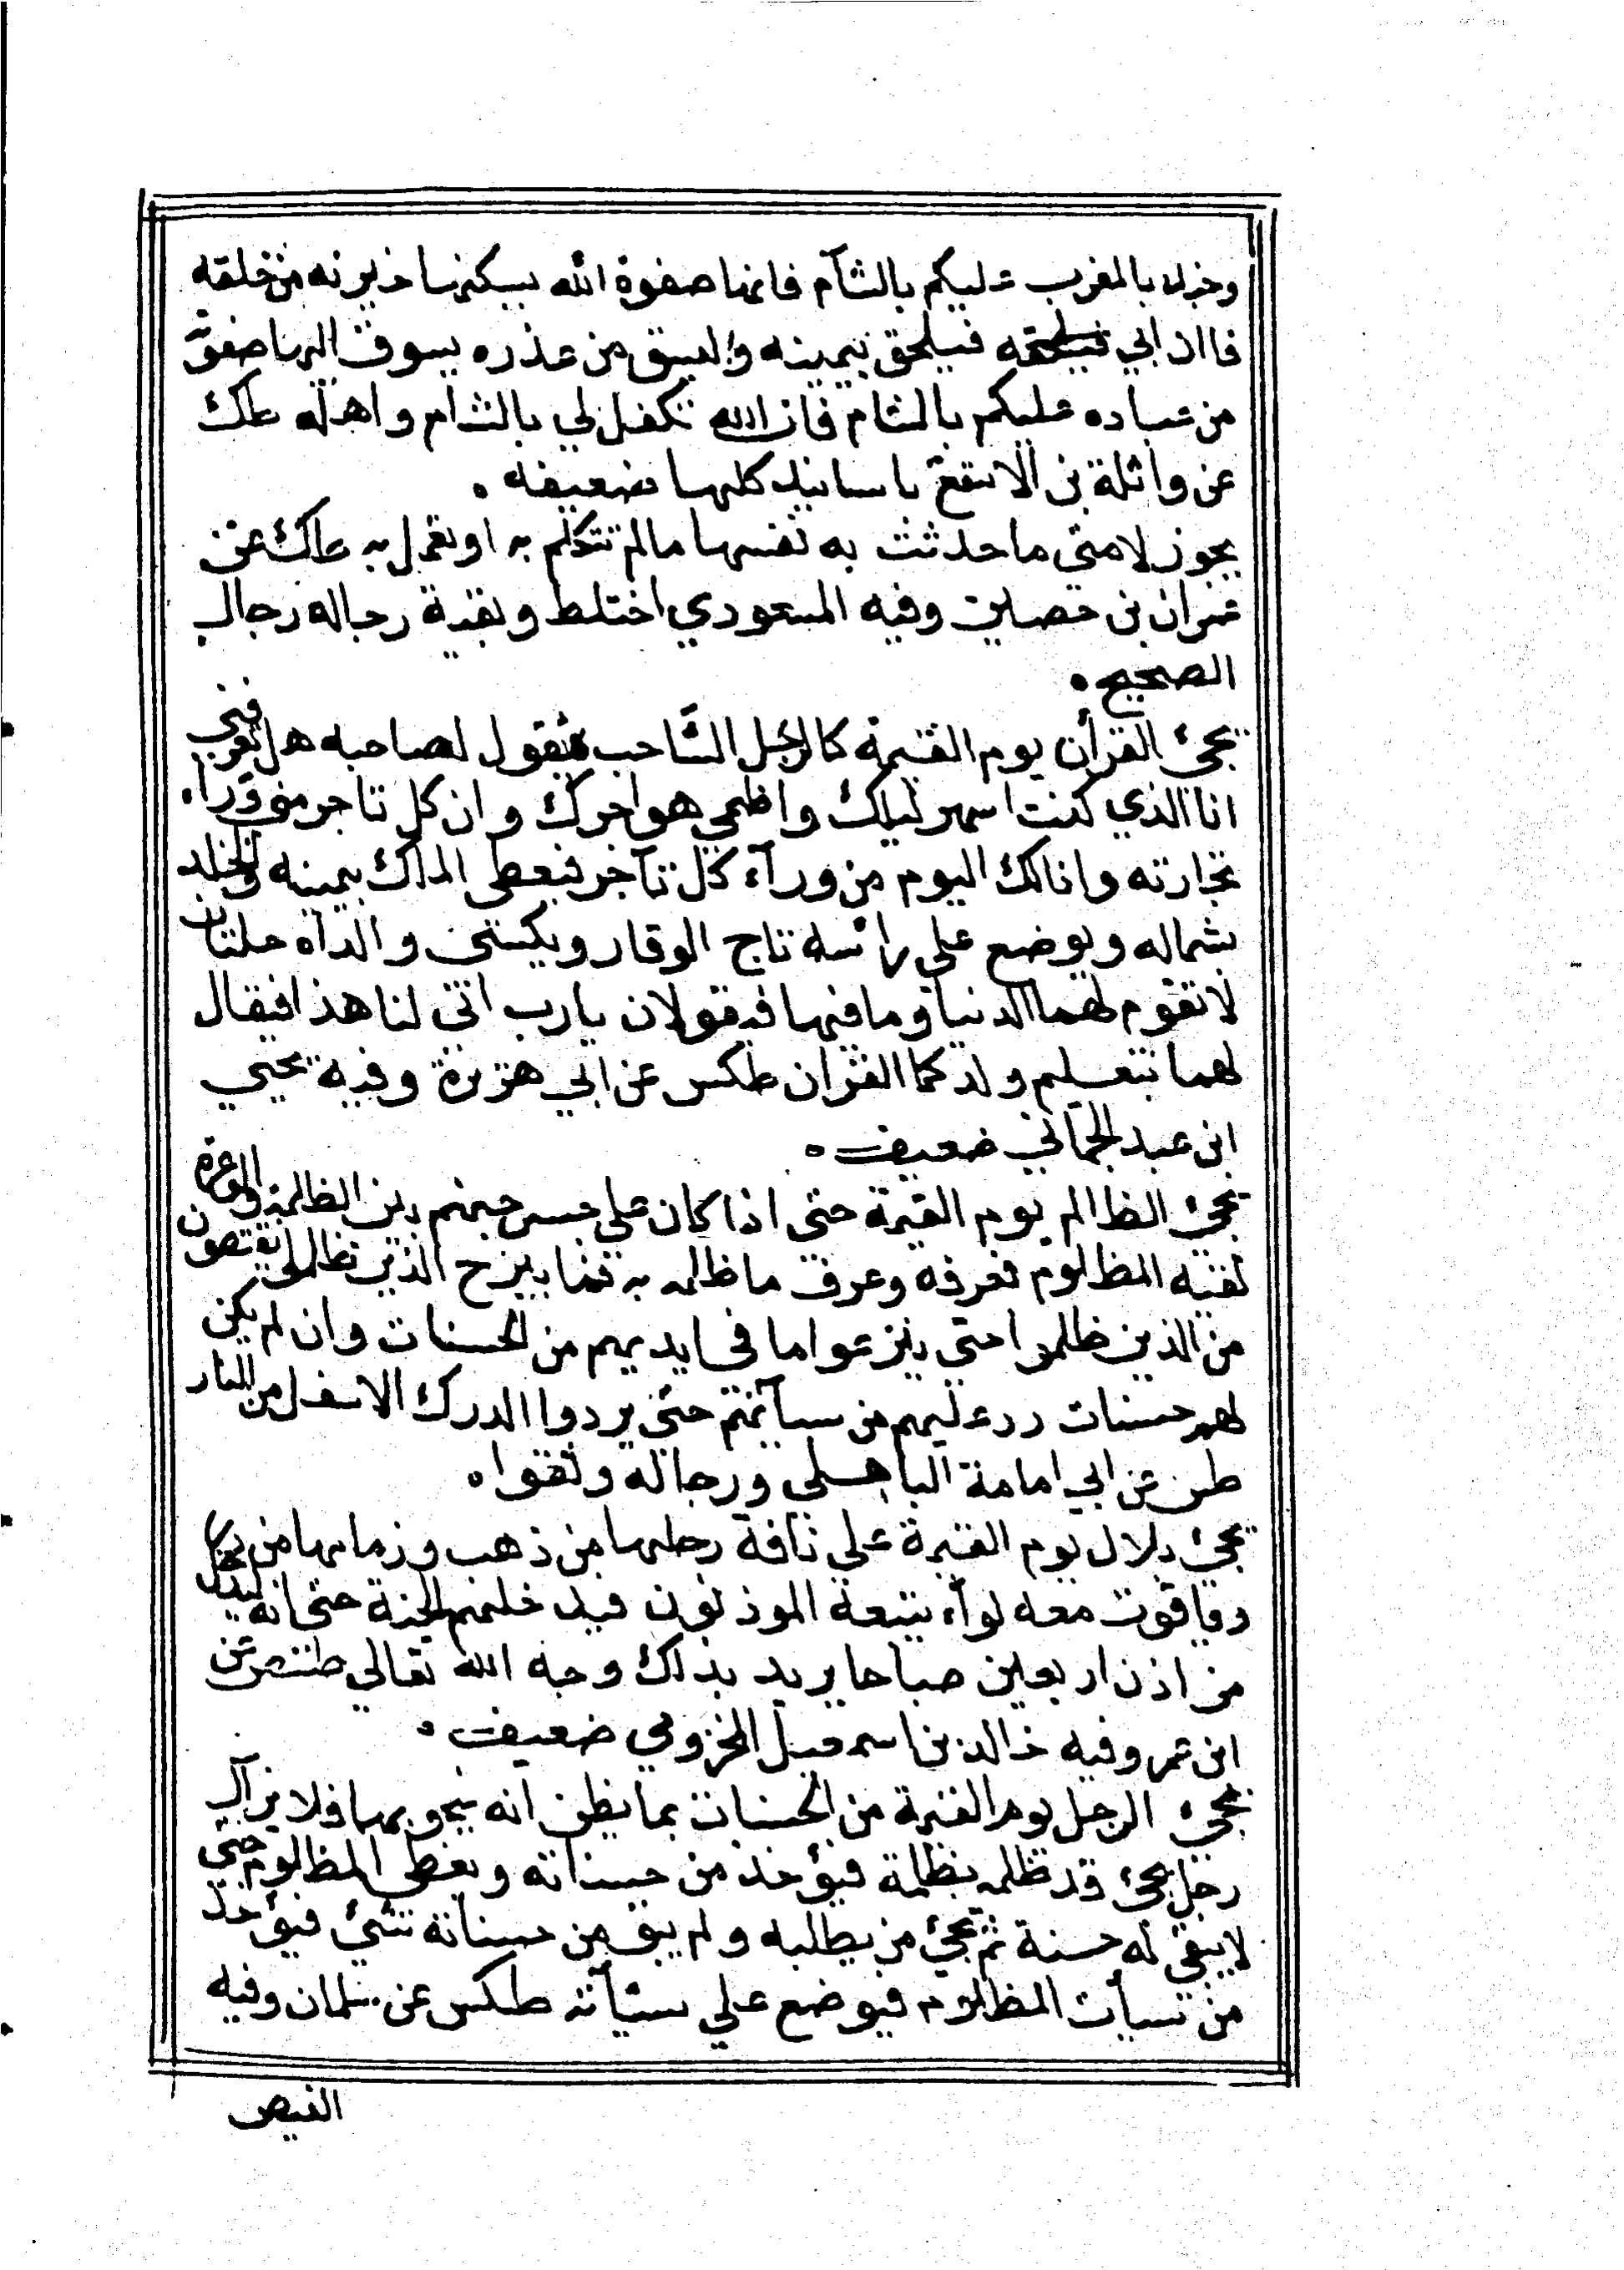 وجند بالمغرب عليكم بالشآم فانها صفوة الله يسكنها خيرته من خلقه
فان ابي فيلحق بيمينه وليسق من غدره يسوق اليها صفوة
من عباده عليكم بالشام فان الله تكفل لي بالشام واهله عك
عن واثلة بن الاسقع باسانيد كلها ضعيفه .
يجوز لامتي ما حدثت به نفسها مالم تتكلم به او تعمل به عك عن
عمران بن حصين وفيه المسعودي اختلط وبقية رجاله رجال
الصحيح .
يجئ القرأن يوم القيمة كالرجل الشاحب فيقول لصاحبه هل تعرفني
انا الذي كنت اسهر ليلك واظمي هواجرك وان كل تاجر من وراء
تجارته وانا لك اليوم من ورآء كل تآجر فيعطى الملك بيمينه والخلد
بشماله ويوضع علي رأسه تاج الوقار ويكسى والداه حلتان
لا تقوم لهما الدنيا وما فيها فيقولان يارب انى لنا هذا فيقال
لهما بتعليم ولدكما القران طكس عن ابي هريرة وفيه يحيي
ابن عبد الحماني ضعيف .
يجئ الظالم يوم القيمة حتى اذا كان علي جسر جهنم بين الظلمة والوعرة
لقيه المظلوم فعرفه وعرف ما ظلمه به فما يبرح الذين ظلموا يقتصون
من الذين ظلموا حتي ينزعوا ما في ايديهم من الحسنات وان لم يكن
لهم حسنات رد عليهم من سيآتهم حتى يردوا الدرك الاسفل من النار
طس عن ابي امامة الباهلي ورجاله وثقوا .
يجئ بلال يوم القيمة علي ناقة رحلها من ذهب وزمامها من در
وياقوت معه لوآء يتبعه الموذنون فيدخلهم الجنة حتى انه ليدخل
من اذن اربعين صباحا يريد بذلك وجه الله تعالي طنتص عن
ابن عمر وفيه خالد بن اسمعيل المخزومي ضعيف .
يجيء الرجل يوم القيمة من الحسنات بما يظن انه ينجو بها فلا يزال
رجل يجئ قد ظلمه بظلمة فيؤخذ من حسناته ويعطى المظلوم حتى
لا يبقي له حسنة ثم يجئ من يطلبه ولم يبق من حسناته شئ فيؤخذ
من سيأت المظلوم فيوضع علي سيأته طكس عن سلمان وفيه
الفيض